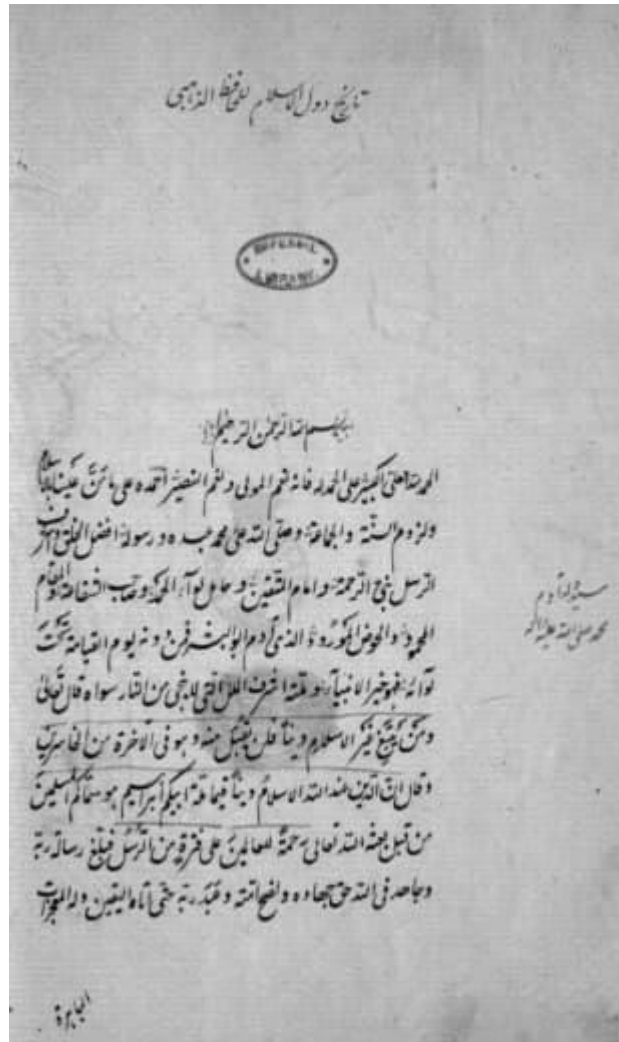 تاريخ دول الاسلام للحافظ الذهبي
IMPERIAL
LIBRARY
بسم الله الرحمن الرحيم
الحمد لله العلى الكبير على الحمد له فانه نعم المولى ونعم النصير احمده على ما مَنَّ علينا بالاسلام
ولزوم السنّة والجماعة وصلى الله على محمد عبده ورسوله افضل الخلق واشرف
الرسل نبى الرحمة وامام المتقين وحامل لوآء الحمد وصاحب الشفاعة والمقام
المحمود والحوض المورود الذى آدم ابو البشر فمن دونه يوم القيامة تحت
لوآئه فهو خير الانبيآء وملته اشرف الملل التى لا ينجى من النار سواه قال تعالى
ومَن يَبتغِ غيرَ الاسلام ديناً فلن يقبل منه وهو فى الآخرة من الخاسرين
وقال انّ الدين عند الله الاسلامُ ديناً قيما ملة ابيكم ابراهيم هو سمّاكم المسلمين
من قبل بعثه الله تعالى رحمةً للعالمين على فترةٍ من الرسل فبلغ رسالة ربّه
وجاهد فى الله حق جهاده ونصح امّته وعَبَدَ ربّه حتى اتاه اليقين وله المعجزات
سيد ولد آدم
محمد صلى الله عليه وآله
الباهرة